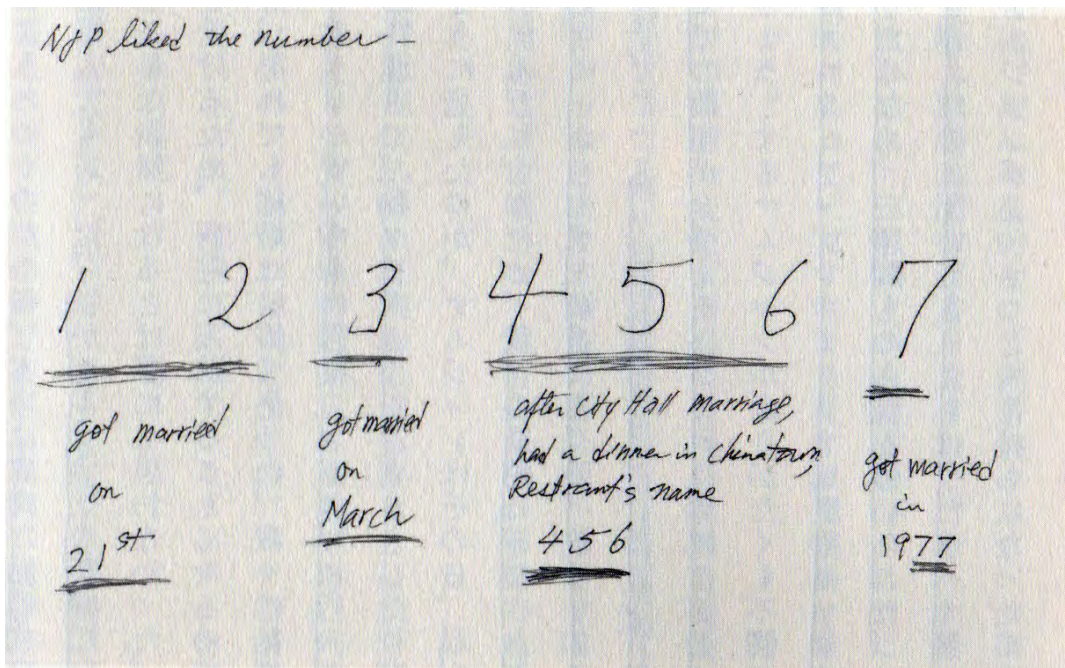 NJP liked the number –
1 2 3 4 5 6 7
got married
on
21st
got married
on
March
after City Hall marriage,
had a dinner in Chinatown,
Restrant's name
456
got married
in
1977